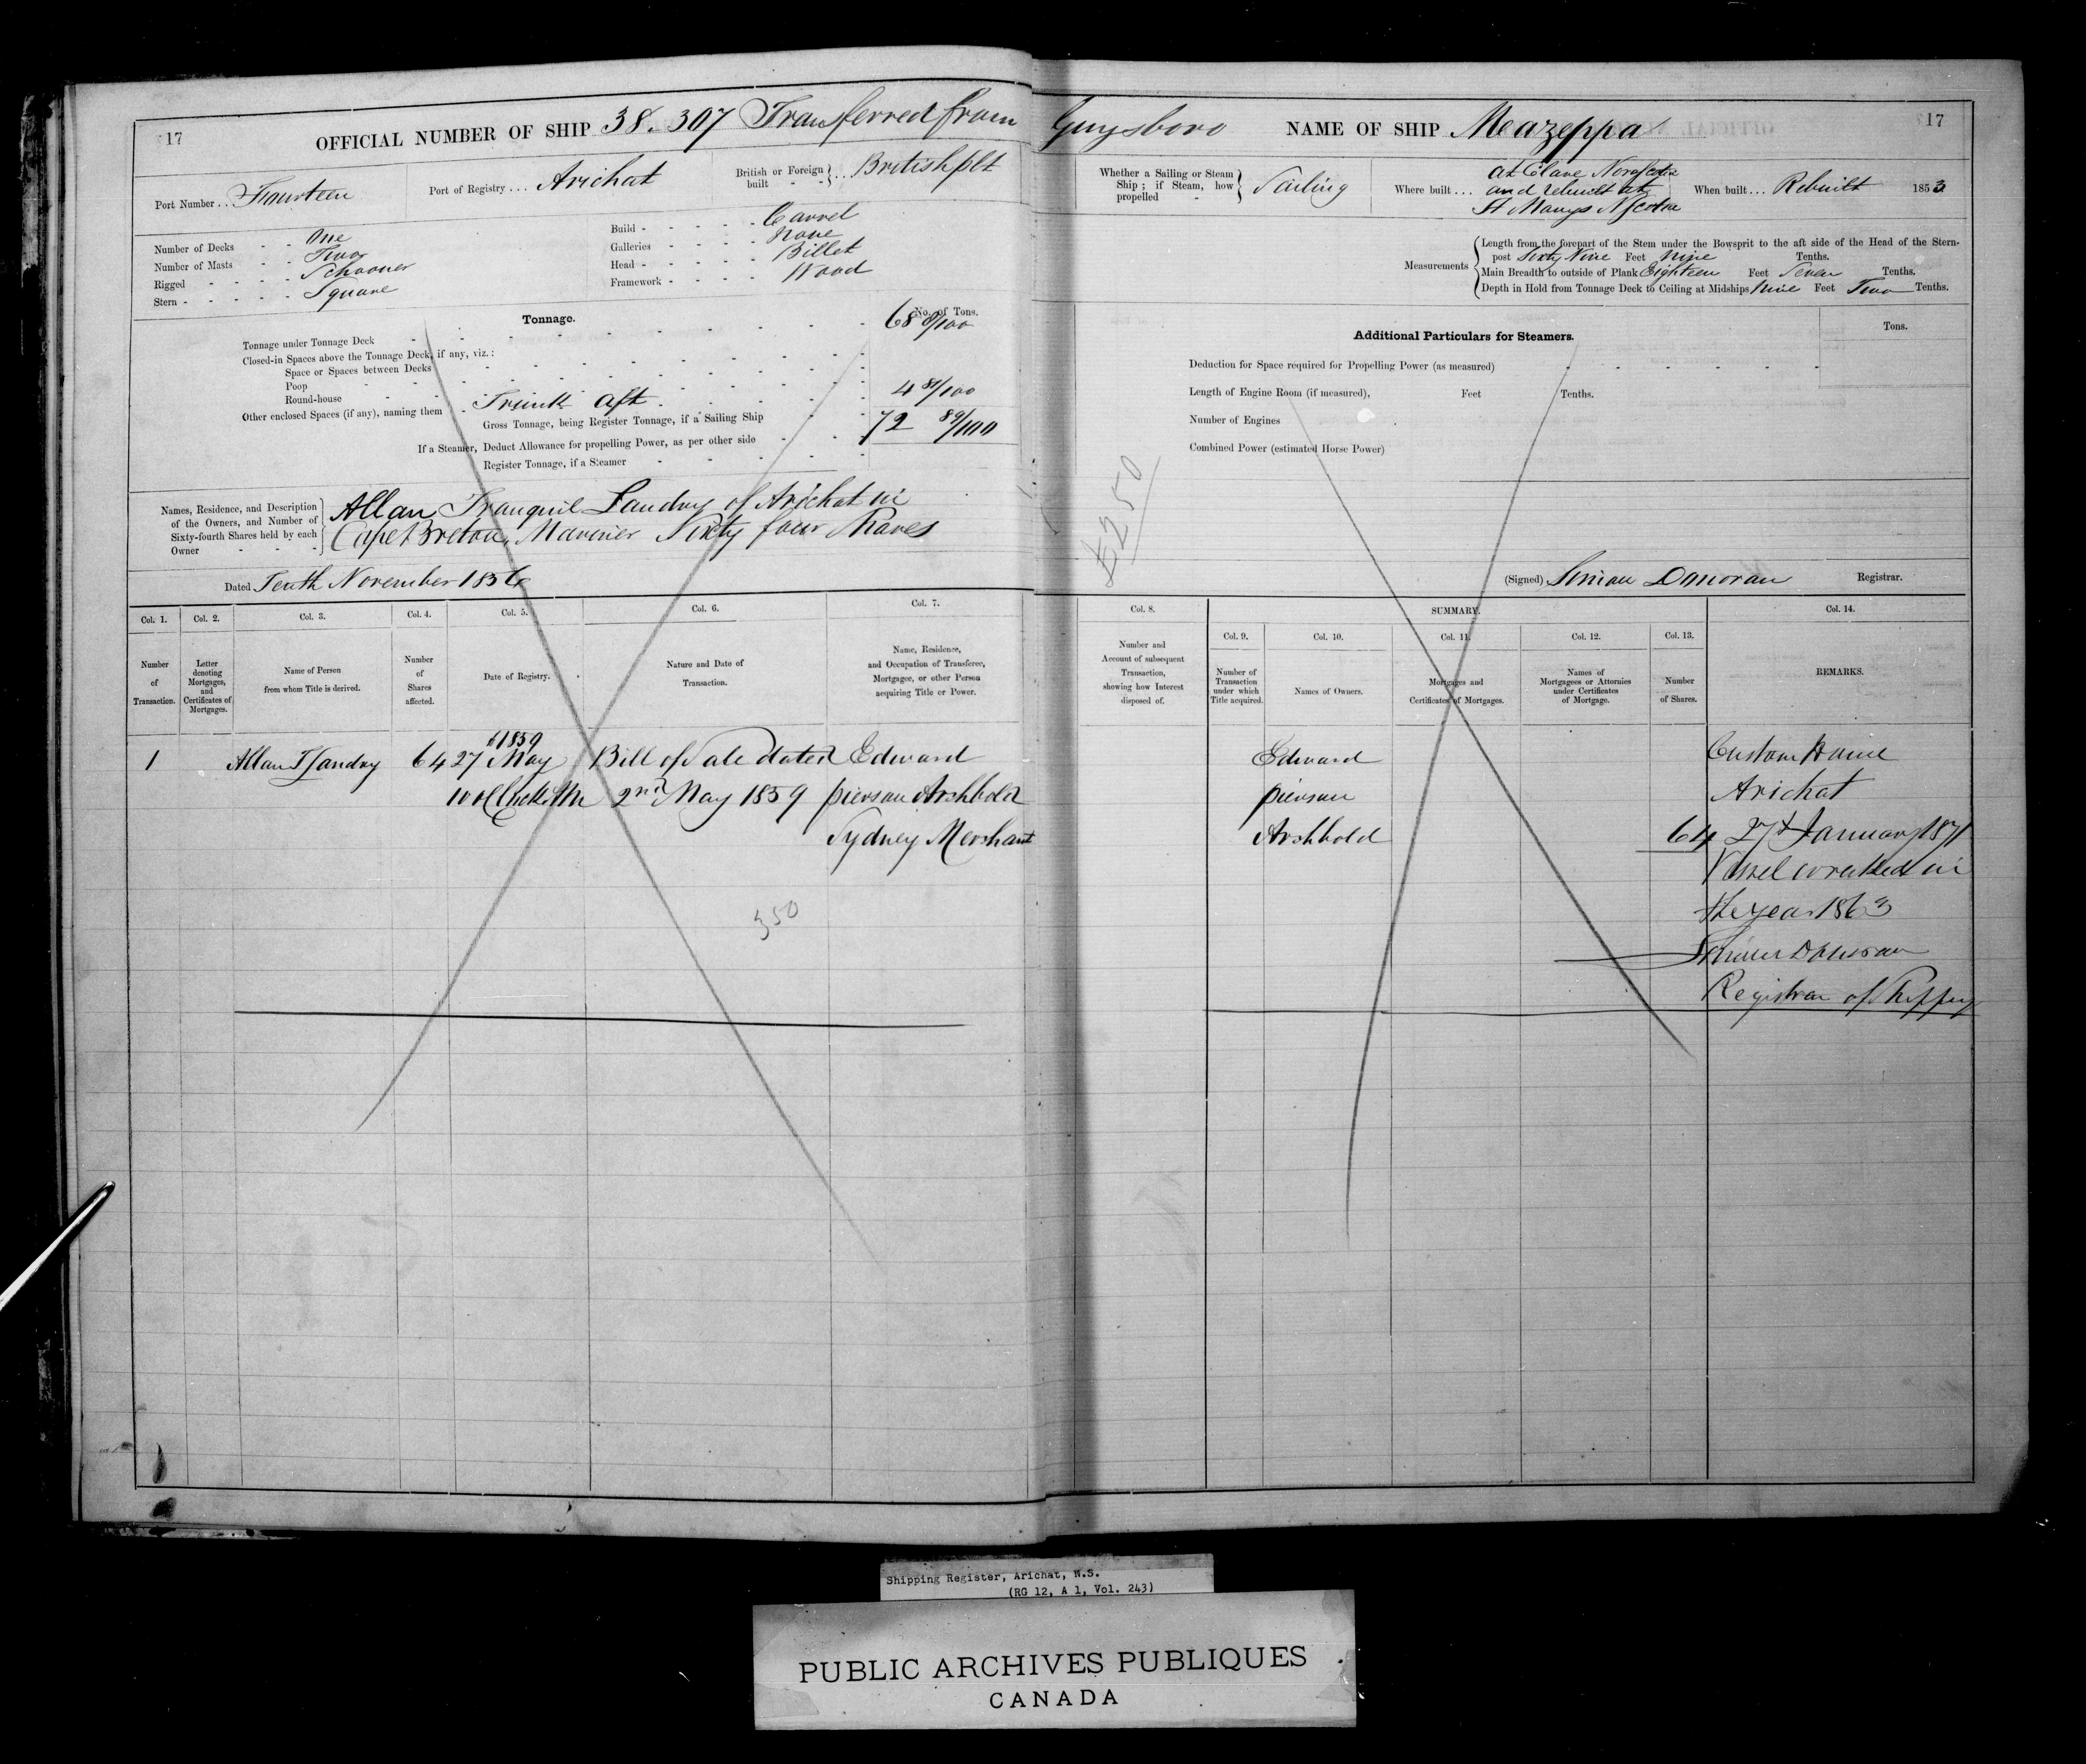 17
OFFICIAL NUMBER OF SHIP 38.307 Transferred from Guysboro
NAME OF SHIP Meazeppa
17
Port Number . . Fourteen
Port of Registry . . . Arichat
British or Foreign built - - } . . British plt
Whether a Sailing or Steam Ship ; if Steam, how propelled - } Sailing
Where built . . . at Clare Nova Scotia and rebuilt at St Marys N Scotia
When built . . . Rebuilt 1853
Number of Decks - - One
Number of Masts - - Two
Rigged - - - - Schooner
Stern - - - - - Square
Build - - - - - Carvel
Galleries - - - - None
Head - - - - - Billet
Framework - - - - Wood
Measurements
Length from the forepart of the Stem under the Bowsprit to the aft side of the Head of the Stern-
post Sixty Nine Feet Nine Tenths.
Main Breadth to outside of Plank Eighteen Feet Seven Tenths.
Depth in Hold from Tonnage Deck to Ceiling at Midships Nine Feet Two Tenths.
Tonnage.
No. of Tons.
Tonnage under Tonnage Deck 68 8/100
Closed-in Spaces above the Tonnage Deck, if any, viz. :
Space or Spaces between Decks
Poop
Round-house
Other enclosed Spaces (if any), naming them - Trunk aft 4 81/100
Gross Tonnage, being Register Tonnage, if a Sailing Ship 72 89/100
If a Steamer, Deduct Allowance for propelling Power, as per other side
Register Tonnage, if a Steamer
Additional Particulars for Steamers.
Tons.
Deduction for Space required for Propelling Power (as measured)
Length of Engine Room (if measured), Feet Tenths.
Number of Engines
Combined Power (estimated Horse Power)
Names, Residence, and Description of the Owners, and Number of Sixty-fourth Shares held by each Owner
Allan Tranquil Landry of Arichat in
Cape Breton, Mariner Sixty four Shares
£250
Dated Tenth November 1856
(Signed) Simon Donovan Registrar.
Col. 1.
Col. 2.
Col. 3.
Col. 4.
Col. 5.
Col. 6.
Col. 7.
Col. 8.
SUMMARY.
Col. 9.
Col. 10.
Col. 11.
Col. 12.
Col. 13.
Col. 14.
Number of Transaction.
Letter denoting Mortgages, and Certificates of Mortgages.
Name of Person from whom Title is derived.
Number of Shares affected.
Date of Registry.
Nature and Date of Transaction.
Name, Residence, and Occupation of Transferee, Mortgagee, or other Person acquiring Title or Power.
Number and Account of subsequent Transaction, showing how Interest disposed of.
Number of Transaction under which Title acquired.
Names of Owners.
Mortgages and Certificates of Mortgages.
Names of Mortgagees or Attornies under Certificates of Mortgage.
Number of Shares.
REMARKS.
1859
1 Allan T Landry 64 27 May Bill of Sale dated Edward
10 o'Clock AM 2nd May 1859 pierson Archbold
Sydney Merchant
350
Edward
pierson
Archbold 64
Custom House
Arichat
27th January 1871
Vessel wrecked in
the year 1863
Simon Donovan
Registrar of Shipping
Shipping Register, Arichat, N.S.
(RG 12, A 1, Vol. 243)
PUBLIC ARCHIVES PUBLIQUES
CANADA